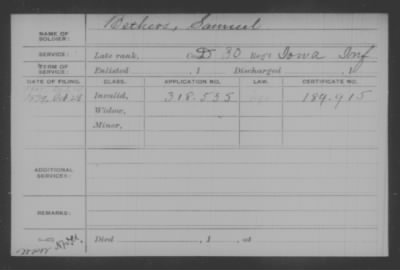 NAME OF SOLDIER: Wethers, Samuel
SERVICE: Late rank, Co. D 30 Reg't Iowa Inf
TERM OF SERVICE: Enlisted , 1 Discharged , 1
DATE OF FILING. CLASS. APPLICATION NO. LAW. CERTIFICATE NO.
1879, Oct 28 Invalid, 318.535 189.915
Widow,
Minor,
ADDITIONAL SERVICE:
REMARKS:
Died , 1 , at